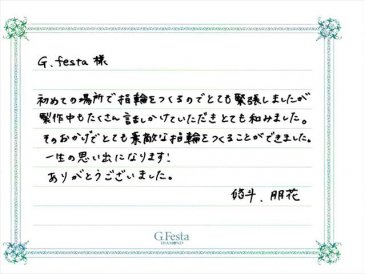 G.festa 様
初めての場所で指輪をつくるのでとても緊張しましたが
製作中もたくさん話しかけていただきとても和みました。
そのおかげでとても素敵な指輪をつくることができました。
一生の思い出になります!
ありがとうございました。
皓斗、朋花
G.Festa
DIAMOND